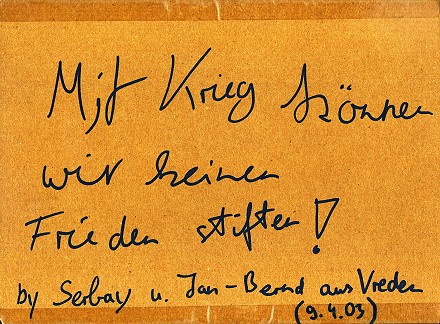 Mit Krieg können
wir keinen
Frieden stiften!
by Serbay u. Jan-Bernd aus Vreden
(9.4.03)